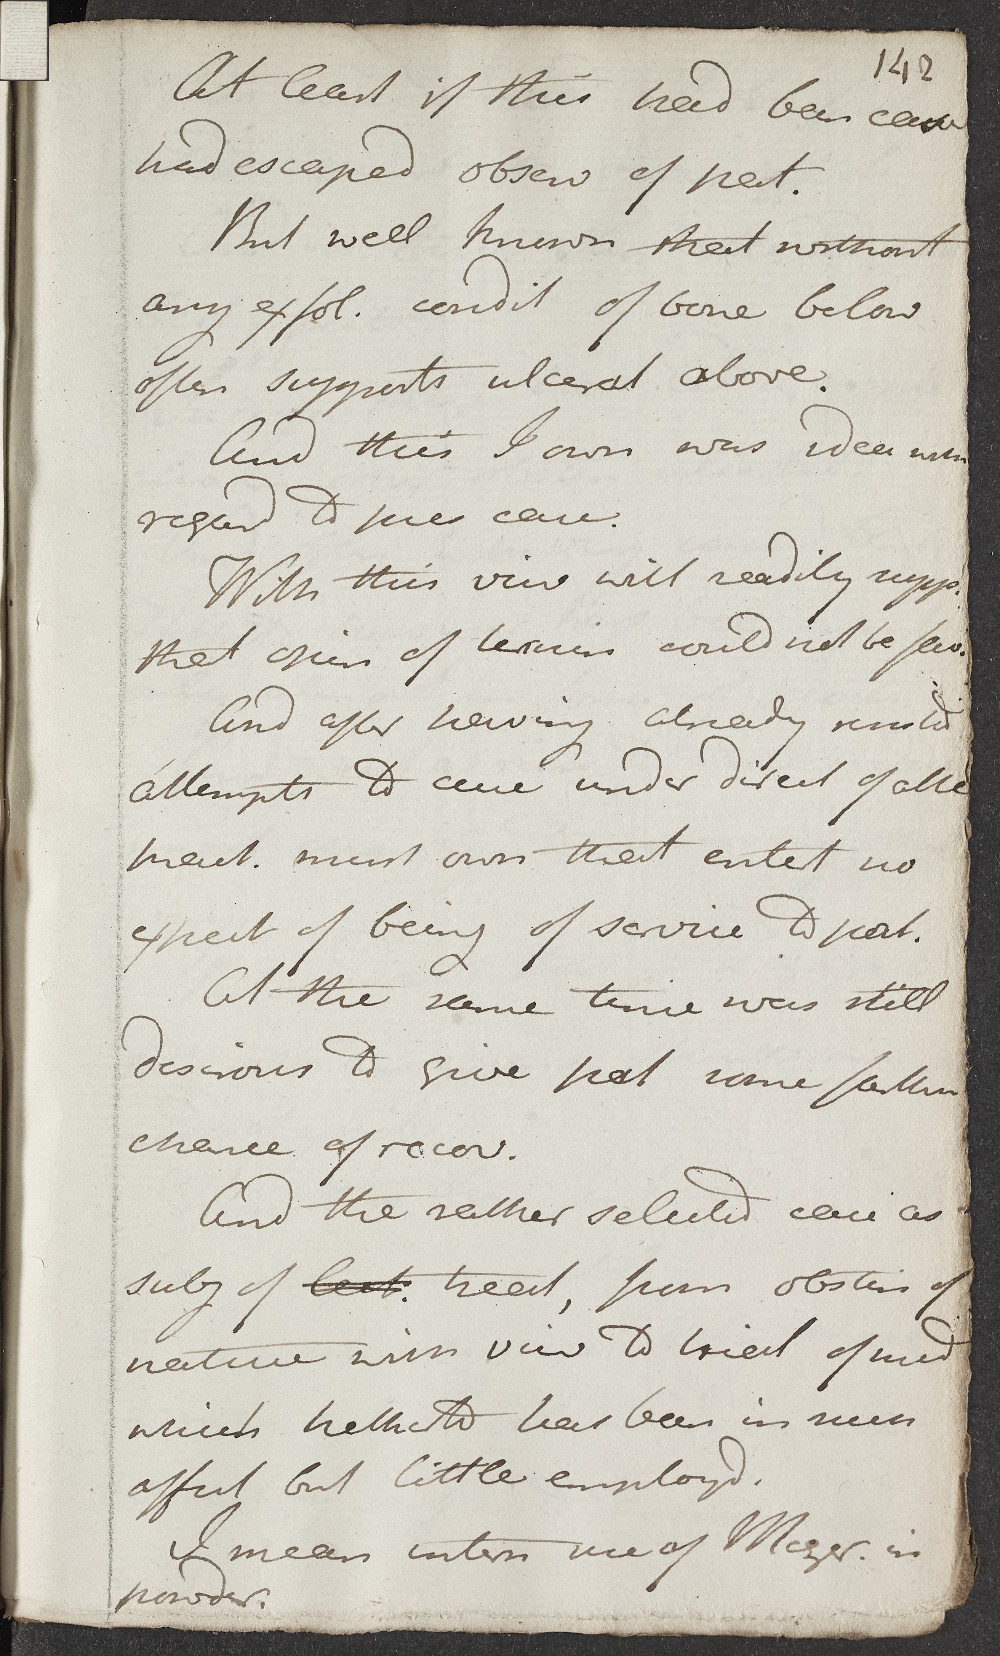 142
At least if this had been case
had escaped observ of pat.
But well known that without
any exfol. condit of bone below
often supports ulcerat above.
And this I own was idea with
regard to pres case.
With this view will readily supp.
that opin of termin could not be fav.
And after having already resisted
attempts to cure under direct of atte
treat. must own that entert no
expect of being of service to pat.
At the same time was still
desirous to give pat some farther
chance of recov.
And the rather selected case as
subj of lect. treat, from obstin of
nature with view to trial of med
which hitherto has been in such
affect but little employd.
I mean intern use of Mezer. in
powder.